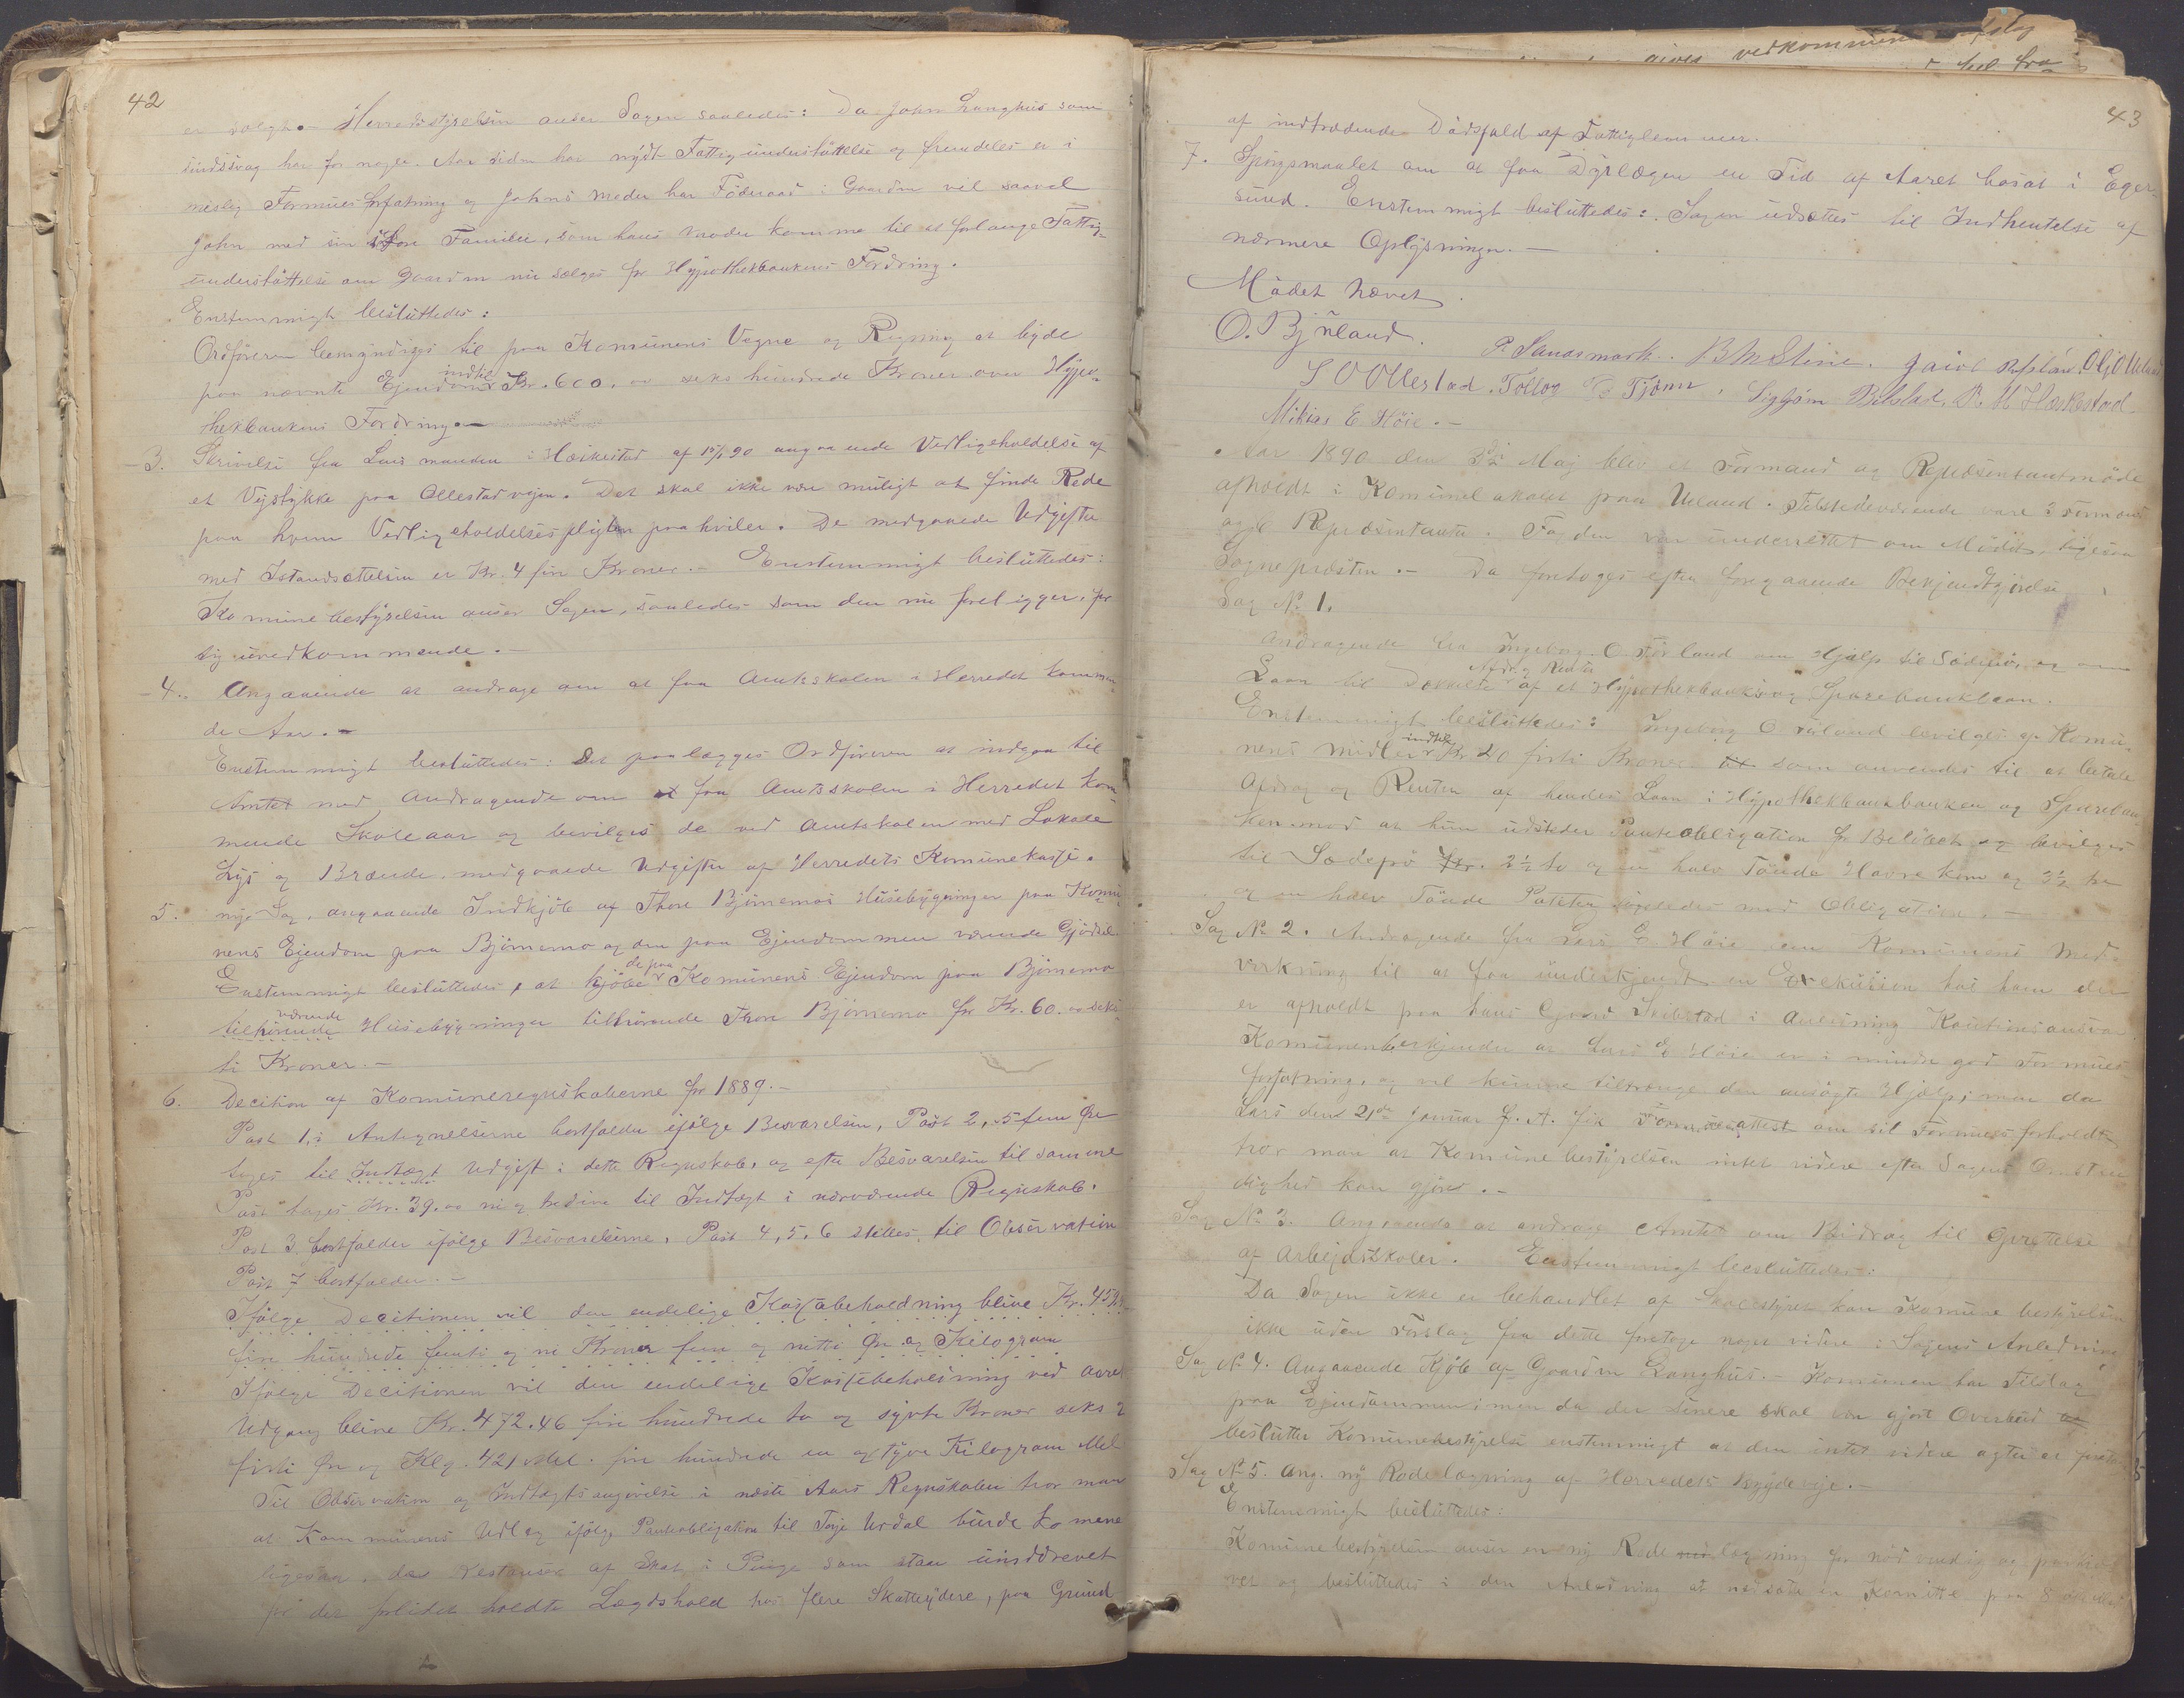 42
er solgt. Herredsstyrelsen anser Sagen saaledes: Da John Langhus som
sindssvag har for nogle Aar siden har nydt Fattigunderstøttelse og fremdeles er i
mislig Formues forfatning og Johns Moder har Föderaad i Gaarden vil saavel
John med sin store Familie, som hans Moder komme til at forlange Fattig-
understøttelse om Gaarden nu sælges for Hypothekbankens Fordring.
Enstemmigt besluttedes:
Ordføreren bemyndiges til paa Komunens Vegne og Regning at byde
paa nævnte Ejendom indtil Kr. 600, seks hundrede Kroner over Hypo-
thekbankens Fordring.
3. Skrivelse fra Lensmanden i Heskestad af angaaende Vedligeholdelse af
et Vejstykke paa Ollestadvejen. Det skal ikke være muligt at finde Rede
paa hvem Vedligeholdelsespligten paahviler. De medgaaede Udgifter
med Istandsættelsen er Kr. 4 fire Kroner. Enstemmigt besluttedes:
Komunebestyrelsen anser Sagen, saaledes som den nu foreligger, for
sig uvedkommende.
4. Angaaende at andrage om at faa Amtsskolen i Herredet kommen
de Aar.
Enstemmigt besluttedes: Det paalægges Ordføreren at indgaa til
Amtet med Andragende om at faa Amtsskolen i Herredet kom-
mende Skoleaar og bevilges de ved Amtskolen med Lokale
Lys og Brænde medgaaede Udgifter af Herredets Komunekasse.
5. nye Sag, angaaende Indkjöb af Thore Björnemos Husebygninger paa Komu
nens Ejendom paa Björnemo og den paa Ejendommen værende Gjödsel.
Enstemmigt besluttedes, at kjöbe de paa Komunens Ejendom paa Björnemo
tilhörende værende Husebygninger tilhörende Thore Björnemo for Kr. 60. seks
ti Kroner.
6. Decition af Komuneregnskaberne for 1889.
Post 1, i Antegnelserne bortfalder ifölge Besvarelsen, Post 2, 5 fem Öre
tages til Indtægt Udgift i dette Regnskab, og efter Besvarelsen til samme
Post tages Kr. 39.00 ni og tredive til Indtægt i nærværende Regnskab.
Post 3, bortfalder ifölge Besvarelserne, Post 4, 5, 6 stilles til Observation
Post 7 bortfalder.
Ifölge Decitionen vil den endelige Kassebeholdning blive Kr. 459
fire hundrede femti og ni Kroner fem og nitti Öre og Kilogram
Ifölge Decitionen vil den endelige Kassebeholdning ved Aaret
Udgang blive Kr. 472.46 fire hundrede to og sytti Kroner seks
firti Öre og Klg. 421 Mel. fire hundrede en og tyve Kilogram Mel
Til Observation og Indtægtsangivelse i næste Aars Regnskaber tror man
at Kommunens Udlæg ifölge Panteobligation til Torje Urdal burde komme
ligesaa, de Restanser af Skat i Penge som staar uinddrevet
for det forlidet holdte Lægdshold hos flere Skatteydere, paa Grund
43
af indtrædende Dödsfald af Fattiglemmer.
7. Spörgsmaalet om at faa Dyrlægen en Tid af Aaret bosat i Eger-
sund. Enstemmigt besluttedes: Sagen udsættes til Indhentelse af
nærmere Oplysninger.
Mödet hævet.
O. Björland. P. Sandsmark. B M Stene.
S O Ollestad. Tollog Tjörn. R. M. Heskestad.
Mikias E Höie.
Aar 1890 den Maj blev et Formand og Repræsentantmöde
afholdt i Komunelokalet paa Ueland. Tilstedeværende vare 3 Formænd
og 8 Repræsentanter. Fogden var underrettet om Mödet, ligesaa
Sognepræsten. Da foretoges efter foregaaende Bekjendtgjörelse
Sag No 1.
Andragende fra Ingeborg O. om Hjælp til Sædefrö, og om
Laan til Afdrag Renter af et Hypothekbank og Sparebanklaan.
Enstemmigt besluttedes: Ingeborg O bevilges af Komu-
nens Midler indtil Kr Kroner som anvendes til at betale
Afdrag og Renter af hendes Laan i Hypothekbanken og Spareban
ken mod at hun udsteder Panteobligation for Belöbet og bevilges
til Sædefrö 2½ to og en halv Tönde Havre Korn og 3½ tre
og en halv Tönde Poteter ligeledes mod Obligation.
Sag No 2. Andragende fra Lars E. Höie om Komunens Med-
virkning til at faa underkjendt en Exekution hos ham der
er afholdt paa hans Gaard i Anledning Kautionsansvar
Komunen erkjender at Lars E Höie er i mindre god Formues
forfatning, og vil kunne tiltrænge den ansögte Hjælp, men da
Lars den 21de Januar f. A. fik Formuesattest om sit Formuesforhold
tror man at Komunebestyrelsen intet videre efter Sagens Omstæn
dighed kan gjöre.
Sag No 3. Angaaende at andrage Amtet om Bidrag til Oprettelse
af Arbejdsskoler. Enstemmigt besluttedes:
Da Sagen ikke er behandlet af Skolestyret kan Komunebestyrelsen
ikke uden Forslag fra dette foretage noget videre i Sagens Anledning
Sag No 4. Angaaende Kjöb af Gaarden Langhus. Komunen har Tilslag
paa Ejendommen; men da der senere skal være gjort Overbud
beslutter Komunebestyrelse enstemmigt at den intet videre agter at foreta
Sag No 5. Ang. ny Rodelægning af Herredets Bygdeveje.
Enstemmigt besluttedes:
Komunebestyrelsen anser en ny Rodelægning for nödvendig og
og besluttedes i den Anledning at nedsætte en Komitte paa 8